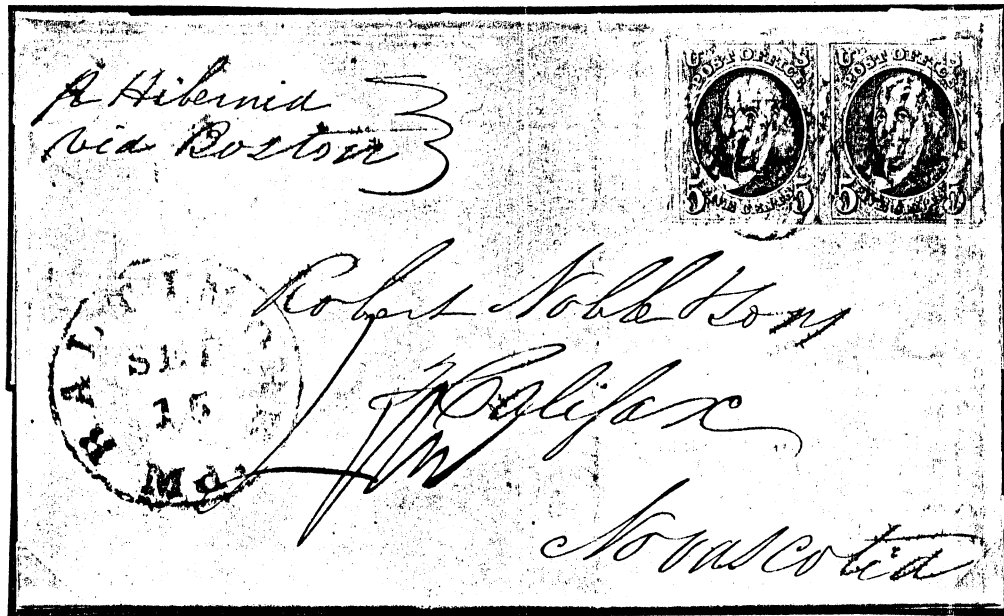 pr Hibernia
via Boston
POST OFFICE POST OFFICE
5 FIVE CENTS 5 5 FIVE CENTS 5
BALTIMORE
SEP
15
Md.
Robert Noble & Sons
Halifax
Novascotia